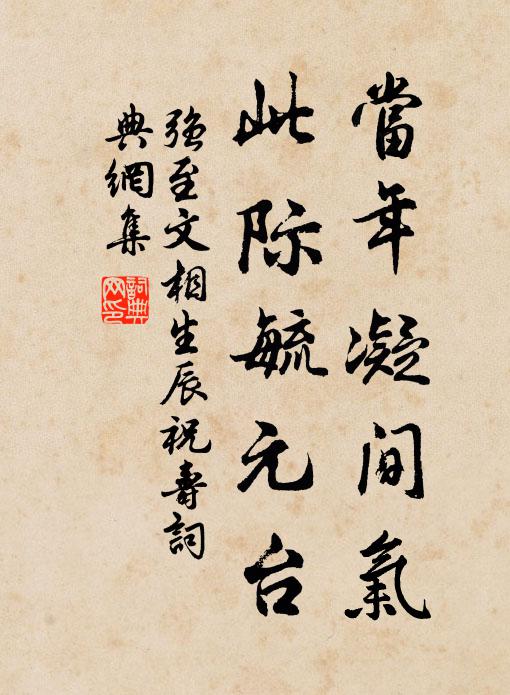 當年凝間氣
此际毓元台
强至文相生辰祝壽詞
典網集
詞典网印